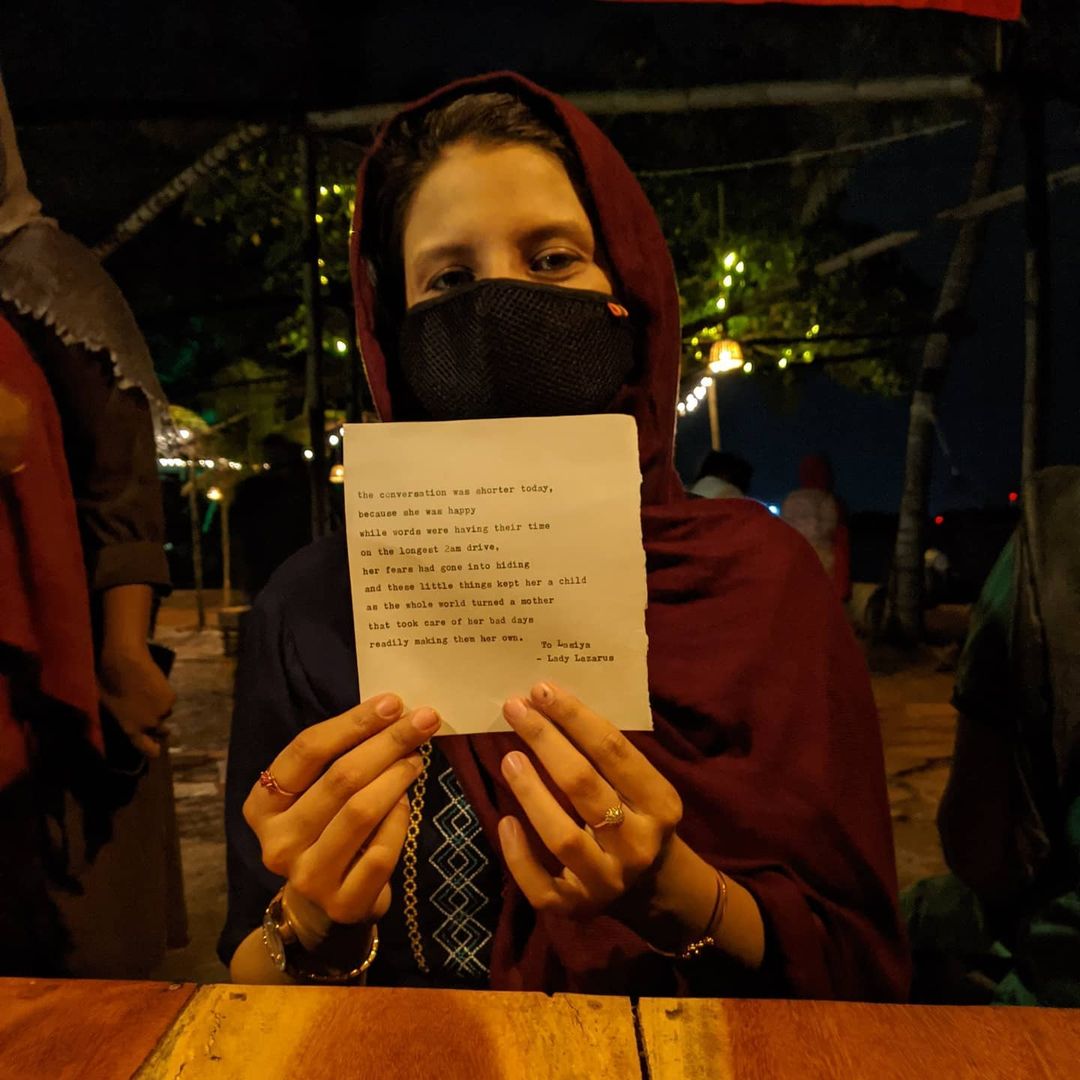 the conversation was shorter today,
because she was happy
while words were having their time
on the longest 2am drive,
her fears had gone into hiding
and these little things kept her a child
as the whole world turned a mother
that took care of her bad days
readily making them her own.
To Lamiya
- Lady Lazarus